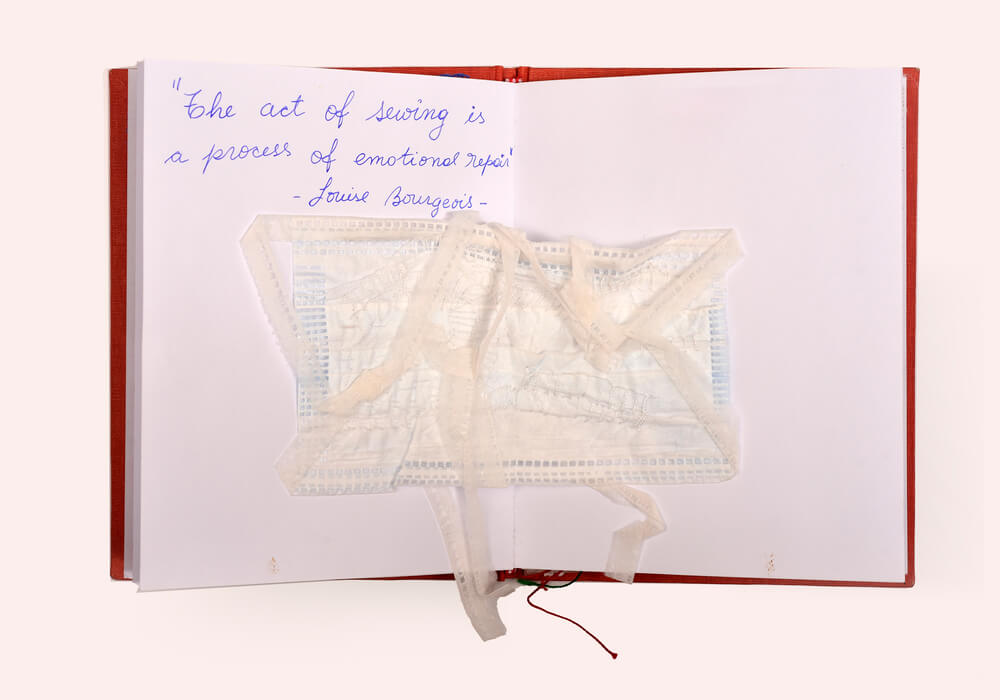 "The act of sewing is
a process of emotional repair"
- Louise Bourgeois -